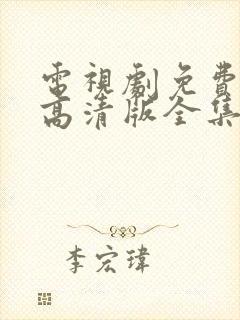 電視劇免費
高清版全集
李宏瑋